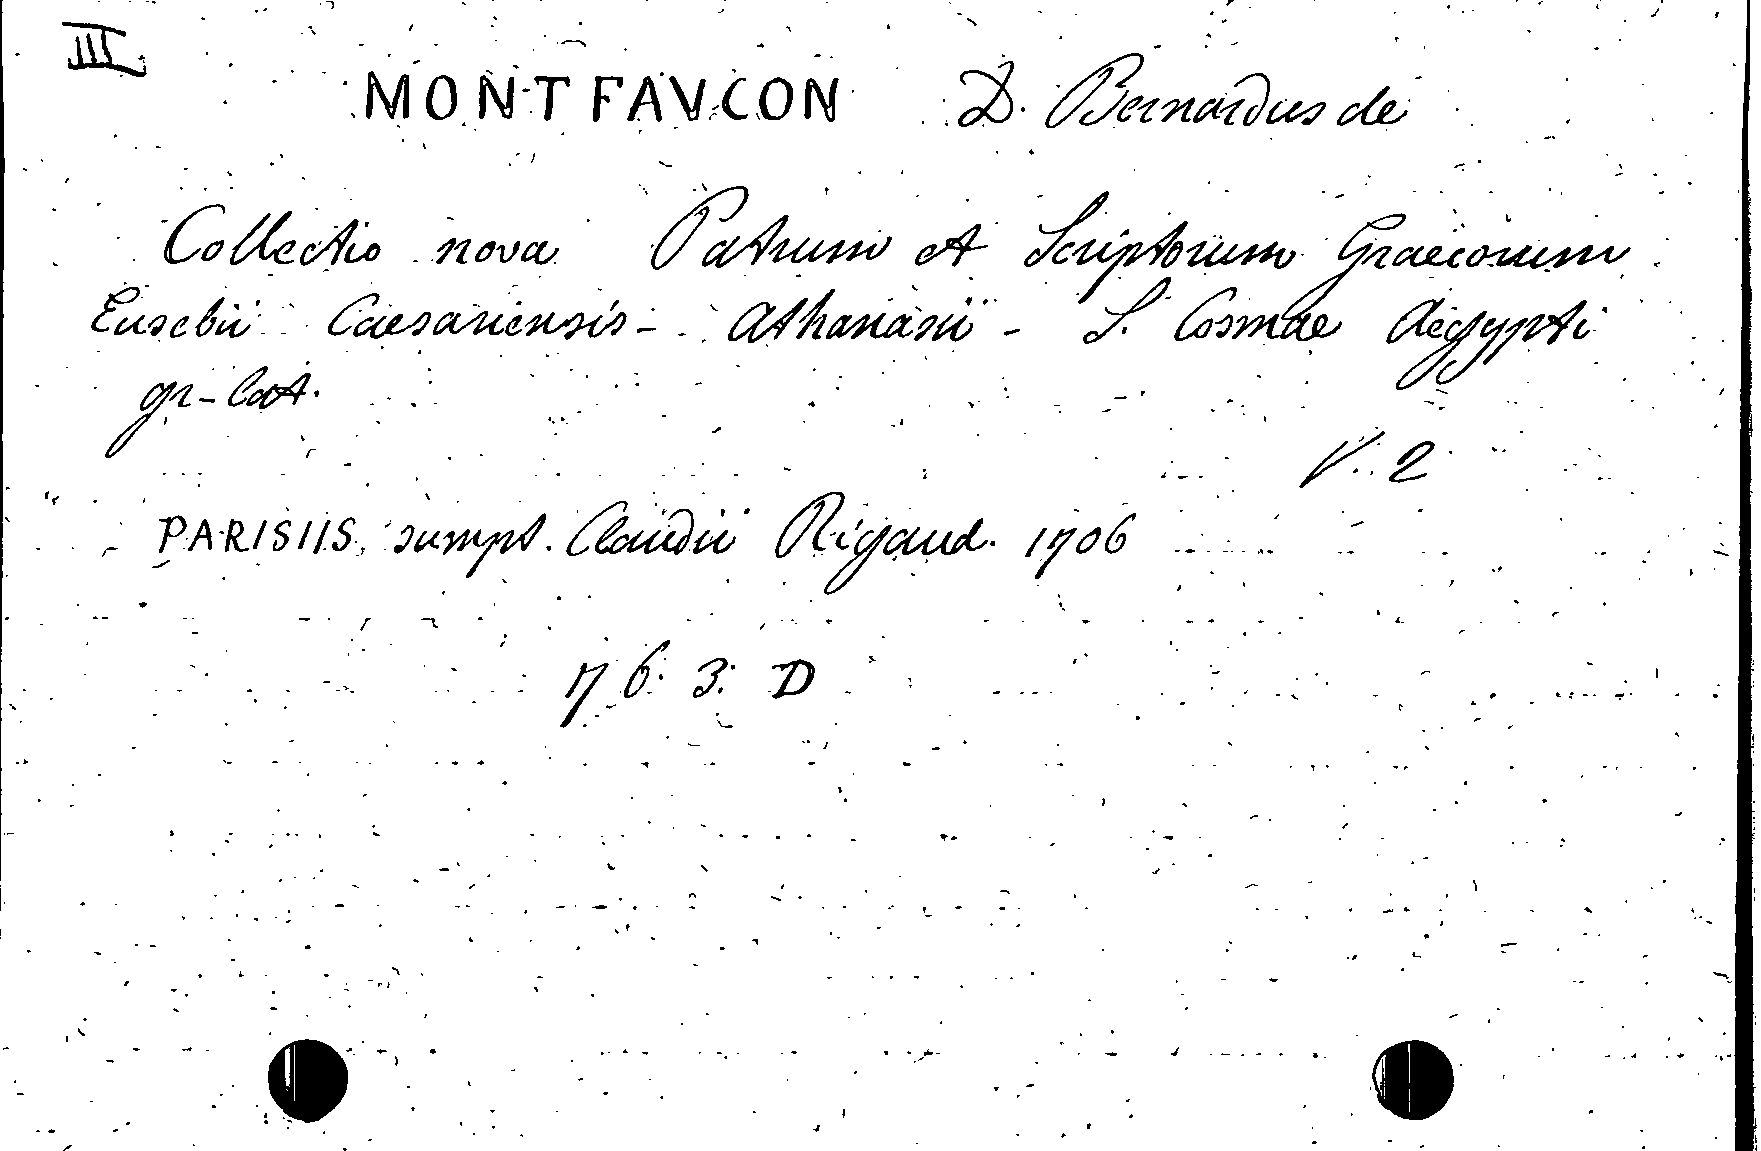 III
MONTFAVCON D. Bernardus de
Collectio nova Patrum et Scriptorum Graecorum
Eusebii Caesariensis - Athanasii - S. Cosmae Aegypti
gr-lat.
V. 2
PARISIIS, sumpt. Claudii Rigaud. 1706
17 6. 3. D